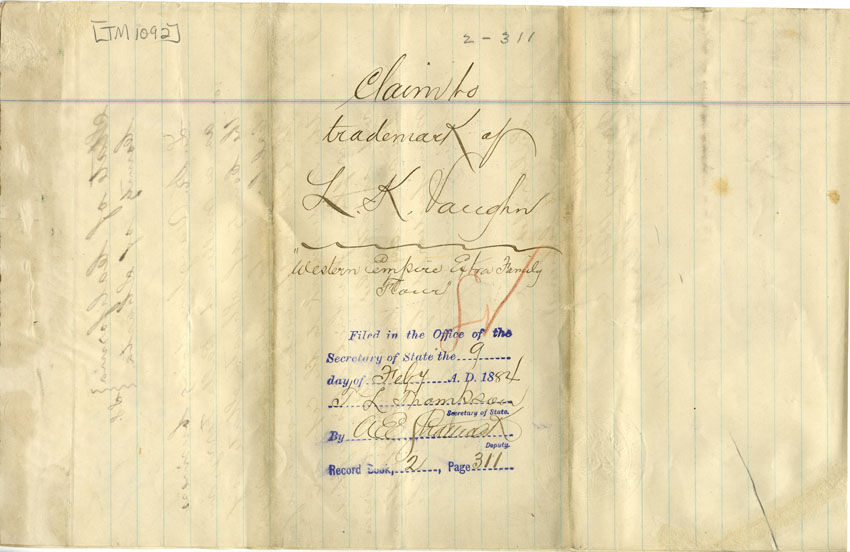 [TM 1092]
2-311
Claim to
trademark of
L. K. Vaughn
"Western Empire Extra Family
Flour"
Filed in the Office of the
Secretary of State the 9
day of Feby A. D. 1884
T L Thompson
Secretary of State.
By
Deputy.
Record Book, 2, Page 311